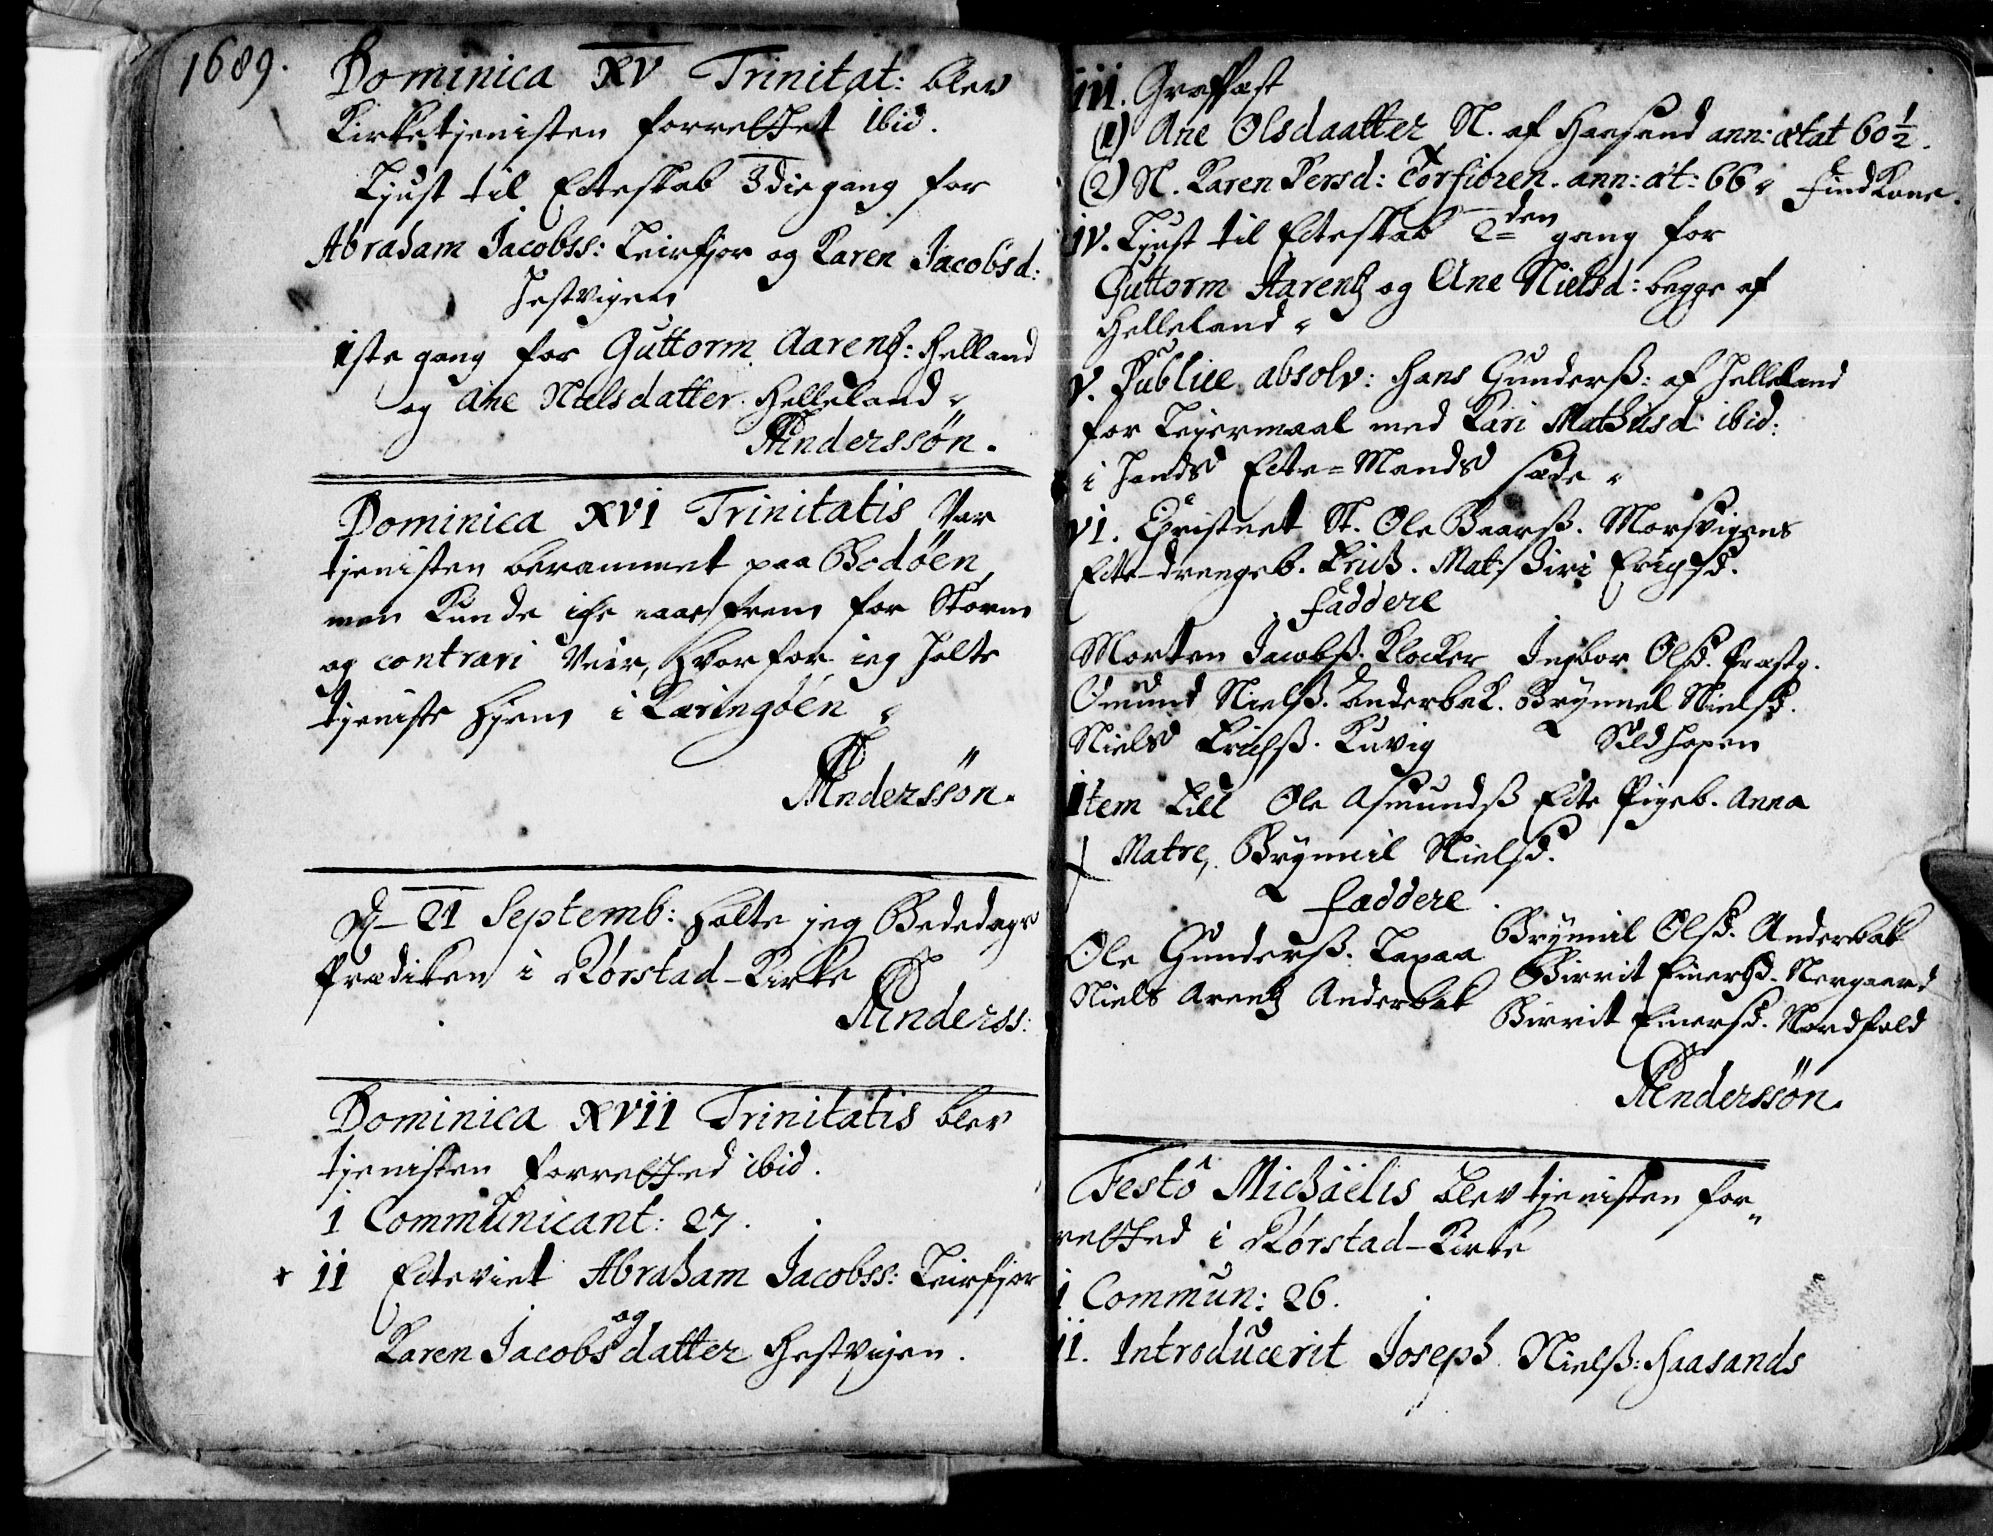 1689.
Dominica XV Trinitat: blev
Kirketjenisten forrettet ibid.
Liust til Ecteskab 3die gang for
Abraham Jacobss: Leirfjor og Karen Jacobsd:
Hestvigen
1ste gang for Guttorm Aarentz: Helland
og Ane Nielsdatter Helleland
Anderssøn.
Dominica XVI Trinitatis Var
tjenisten berammet paa Bodøen,
men Kunde icke naae frem for Storm
og contrari Veir, hvorfor jeg holte
tjeniste hjem i Kæringøen
Anderssøn.
D. 21 Septemb: holte jeg Bededags
Prædiken i Rørstad-Kirke
Anderss:
Dominica XVII Trinitatis blev
tjenisten forretted ibid.
i Communicant: 27.
ii Ecteviet Abraham Jacobss: Leirfjor
og
Karen Jacobsdatter Hestvigen.
iii. Graffæst
(1) Ane Olsdaatter N. af Haasand ann: ætat 60 1/2.
(2) N. Karen Persd: Torfioren. ann: æt: 66 Find Kone.
iv. Liust til Ecteskab 2den gang for
Guttorm Aarentz og Ane Nielsd: begge af
Helleland
v. Publice absolv: Hans Gunderss: af Helleland
for Leyermaal med Kari Mathiisd ibid:
i hands Ecte-Mands sæde
vi. Christnet N. Ole Baarss. Morsvigens
Ecte-drengeb. Mat: Siri Erichsd.
Faddere
Morten Jacobss. Klocker Ingbor Olsd. Præstg.
Omund Nielss. Anderbak. Brynnel Nielsd.
Niels Erichss. Kuvig Sildhopen
Item Ole Asmundss Ecte Pigeb. Anna
Matre, Brynnil Nielsd.
Faddere
Ole Gunderss. Løpaa Brynnil Olsd. Anderbak
Niels Arentz Anderbak Birrit Einersd. Nergaard
Birrit Einersd. Nordfold
Anderssøn.
Festo Michaëlis blev tjenisten for-
retted i Rørstad-Kirke
i Commun: 26.
ii. Introducerit Joseph Nielss: Haasands